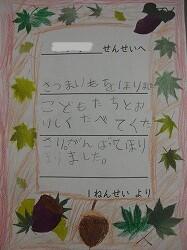 せんせいへ
さつまいもをほりました
こどもたちとお
いしくたべてくだ
さい。がんばってほり
ました。
1ねんせい より